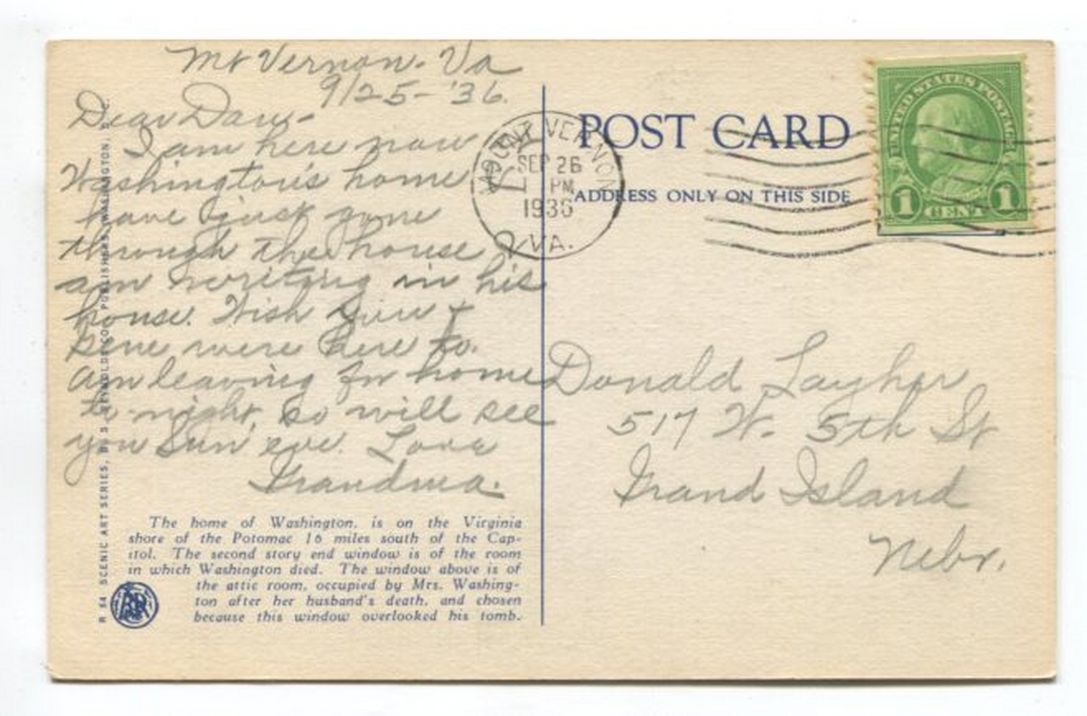 Mt Vernon. Va
9/25-'36.
Dear Don-
I am here now
Washington's home
have just gone
through the house
am writing in his
house. Wish you +
Gene were here to.
am leaving for home
to-night, so will see
you Sun eve. Love
Grandma.
The home of Washington, is on the Virginia
shore of the Potomac 16 miles south of the Cap-
itol. The second story end window is of the room
in which Washington died. The window above is of
the attic room, occupied by Mrs. Washing-
ton after her husband's death, and chosen
because this window overlooked his tomb.
R 64 SCENIC ART SERIES, B. S. REYNOLDS CO., PUBLISHERS, WASHINGTON, D.
MOUNT VERNON
SEP 26
1 PM
1936
VA.
POST CARD
ADDRESS ONLY ON THIS SIDE
UNITED STATES POSTAGE
1 CENT 1
Donald Layher
517 W. 5th St
Grand Island
Nebr.